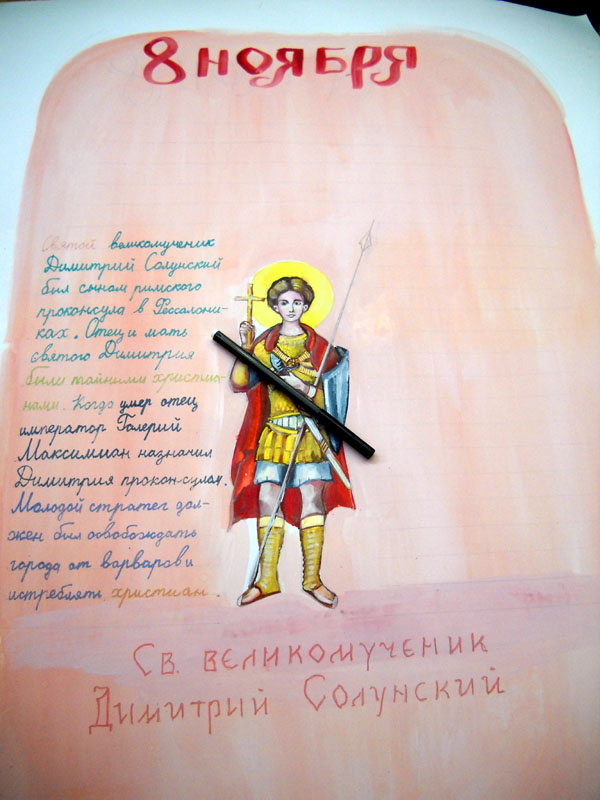 8 ноября
Святой великомученик
Димитрий Солунский
был сыном римского
проконсула в Фессалони-
ках. Отец и мать
святого Димитрия
были тайными христиа-
нами. Когда умер отец
император Галерий
Максимиан назначил
Димитрия прокон-сулом.
Молодой стратег дол-
жен был освобождать
города от варваров и
истреблять христиан.
Св. великомученик
Димитрий Солунский